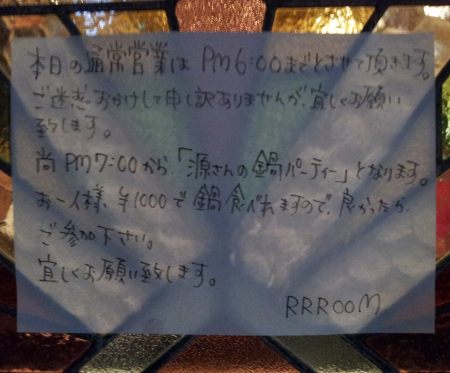 本日の通常営業は PM6:00までとさせて頂きます。
ご迷惑おかけして申し訳ありませんが、宜しくお願い
致します。
尚 PM7:00から、「源さんの鍋パーティー」となります。
お一人様、¥1000で鍋食べれますので、良かったら、
ご参加下さい。
宜しくお願い致します。
RRROOM